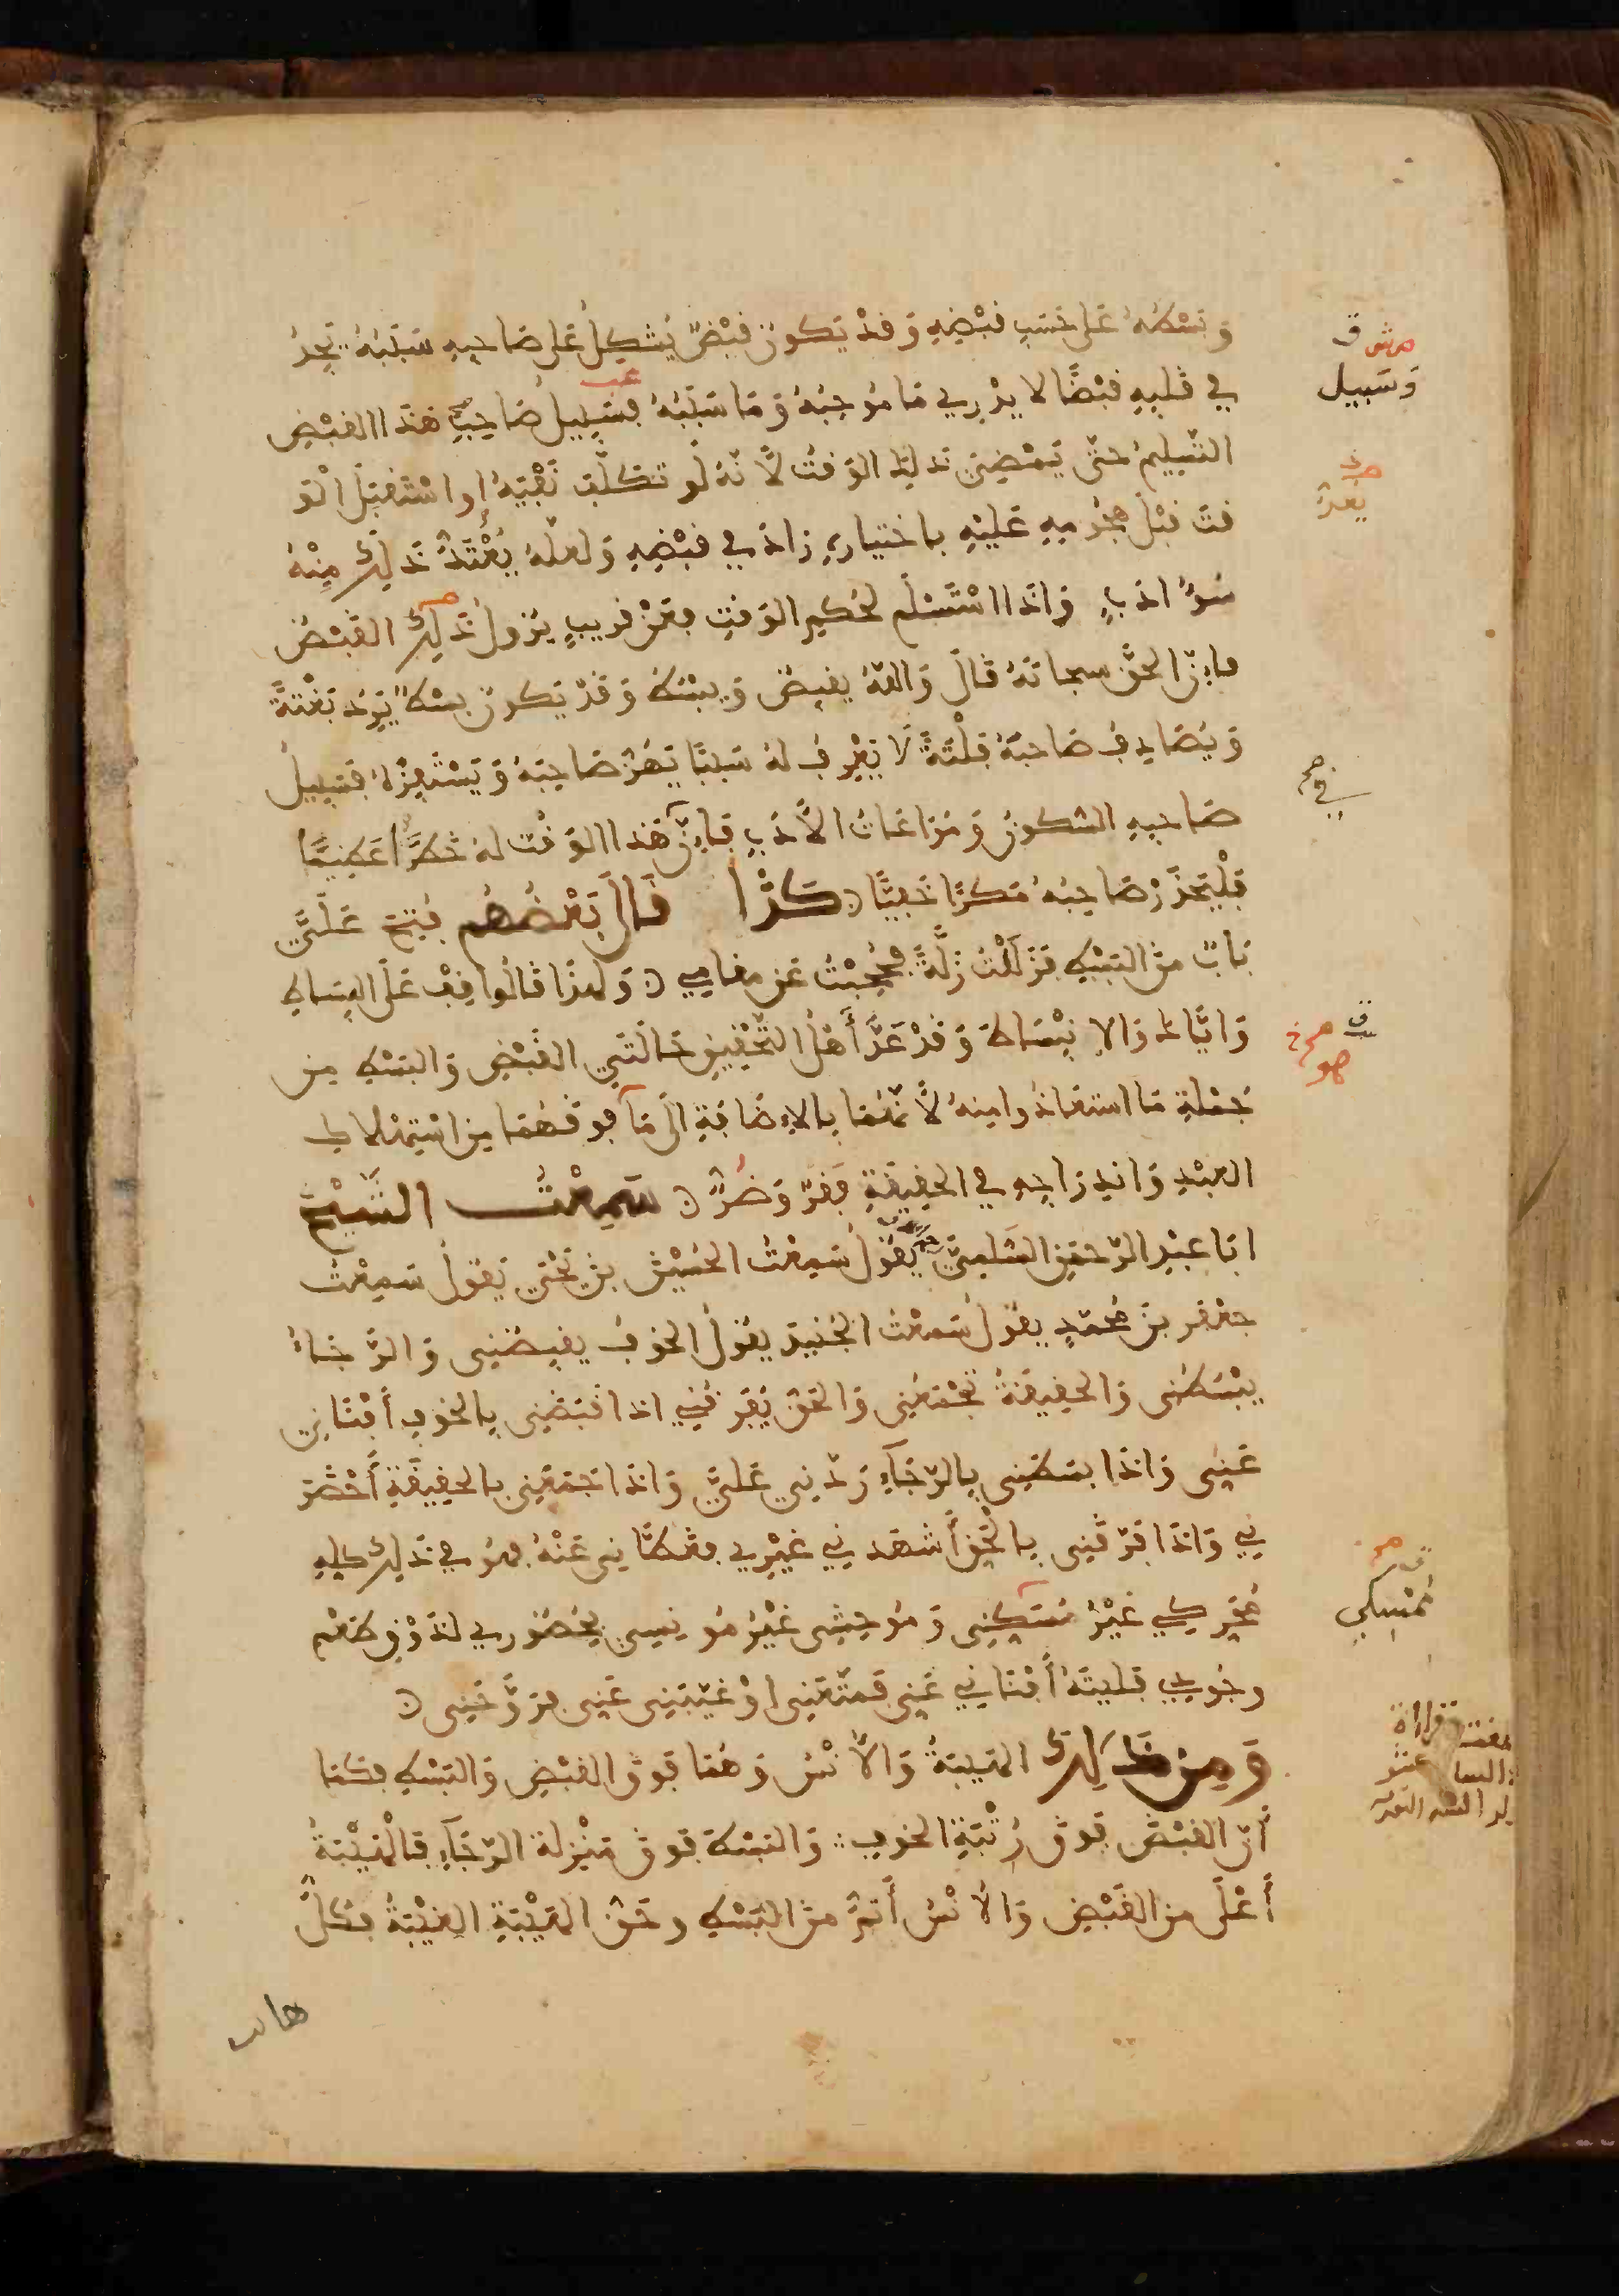 وَبَسْطُهُ عَلَى حَسَبِ قَبْضِهِ وَقَدْ يَكُونُ قَبْضٌ يُشْكِلُ عَلَى صَاحِبِهِ سَبَبُهُ يَجِدُ
في قَلْبِهِ قَبْضًا لا يَدْرِي مَا مُوجِبُهُ وَمَا سَبَبُهُ فسَبِيلُ صَاحِبِ هَذَا القَبْضِ
التَّسْلِيمُ حَتَّى يَمْضِيَ ذَلِكَ الوَقْتُ لأَنَّهُ لَو تَكَلَّفَ نَفْيَهُ أو اسْتَقْبَلَ الْوَ
قتَ قَبْلَ هُجُومِهِ عَلَيْهِ بِاخْتِيَارِهِ زَادَ فِي قَبْضِهِ وَلَعَلَّهُ يُعْتَدُّ ذَلِكَ مِنْهُ
سُوءُ ادَبٍ وَاذَا اسْتَسْلَمَ لحُكْمِ الوَقْتِ فعَنْ قَرِيبٍ يَزُولُ ذَلِكَ القَبْضُ
فإنّ الحَقَّ سبحانَهُ قَالَ وَاللهُ يقبِضُ وَيبْسُطُ وَقَدْ يَكُونُ بسْطٌ يَرِدُ بَغْتَةً
وَيُصَادِفُ صَاحبَهُ فَلْتَةً لَا يَعْرِفُ لهُ سَبَبًا يَهُزُّ صَاحِبَهُ وَيَسْتَفِزُّهُ فَسَبِيلُ
صَاحِبِهِ السُّكُونُ وَمُرَاعَاتُ الأَدَبِ فَإِنَّ هَذَا الوَقْتَ لهُ خَطَرًا عَظِيمًا
فَلْيَحْذَرْ صَاحِبُهُ مَكرًا خَفِيًّا كَذَا قَالَ بَعْضُهُم فُتِحَ عَلَيَّ
بَابٌ منَ البَسْطِ فَزَلَلْتُ زَلَّةً فَحُجِبْتُ عَن مقَامِي وَلهذَا قَالُوا قِفْ عَلَى البِسَاطِ
وَايَّاكَ وَالانْبِسَاطَ وَقَدْ عَدَّ أَهْلُ التَّحْقِيقِ حَالَتَيِ القَبْضِ وَالبَسْطِ مِن
جُمْلَةِ مَا استَعَاذُوا مِنهُ لأَنَّهُمَا بالإِضَافَةِ الَى مَا فوقَهُمَا مِن اسْتِهْلَاكِ
العَبْدِ وَانْدِرَاجِهِ في الحَقِيقَةِ فَقْرٌ وَضُرٌّ سَمِعْتُ الشَّيْخَ
ابَا عَبْدِ الرّحمَنِ السُّلَمِيَّ يَقُولُ سَمِعْتُ الحُسَيْنَ بنَ يَحْيَى يَقُولُ سَمِعْتُ
جعفر بنَ مُحمَّدٍ يقُولُ سَمعْتُ الجُنَيدَ يقُولُ الخَوفُ يَقبِضُنِي وَالرَّجَاءُ
يبْسُطُنِي وَالحَقِيقَةُ تَجْمَعُنِي وَالحَقُّ يُفَرِّقُنِي اذَا قَبَضَنِي بِالخَوفِ أَفْنَانِي
عَنِّي وَاذَا بَسَطَنِي بِالرَّجَاءِ رَدَّنِي عَلَيَّ وَاذَا جَمَعَنِي بالحَقِيقَةِ أَحْضَرَ
نِي وَاذَا فَرَّقَنِي بِالحَقِّ أَشْهَدَنِي غَيْرِي فغَطَّانِي عَنْهُ فهُوَ فِي ذَلِكَ كلِّهِ
مُحَرِّكِي غَيْرُ مُسَكِّنِي وَمُوحِشِي غَيْرُ مُونِسِي بِحُضُورِي لذَوْقِ طَعْم
وجُودِي فَلَيتَهُ أَفْنَانِي عَنِّي فَمَتَّعَنِي اوْ غَيَّبَنِي عَنِّي فرَوَّحَنِي
وَمِن ذَلِكَ الهَيبَةُ وَالأُنْسُ وَهُمَا فَوقَ القَبْضِ وَالبَسْطِ فكَمَا
أَنَّ القَبْضَ فَوقَ رُتْبَةِ الخَوفِ وَالبَسْطَ فَوقَ مَنْزِلَةِ الرَّجَاءِ فَالْهَيْبَةُ
أَعْلَى منَ القَبْضِ وَالأُنْسُ أَتَمُّ منَ البَسْطِ وحَقُّ الهَيْبَةِ الغَيْبَةُ فكُلُّ
هاىب
وَسَبِيل
يَعُدّ
في
هو
مُمْسِكي